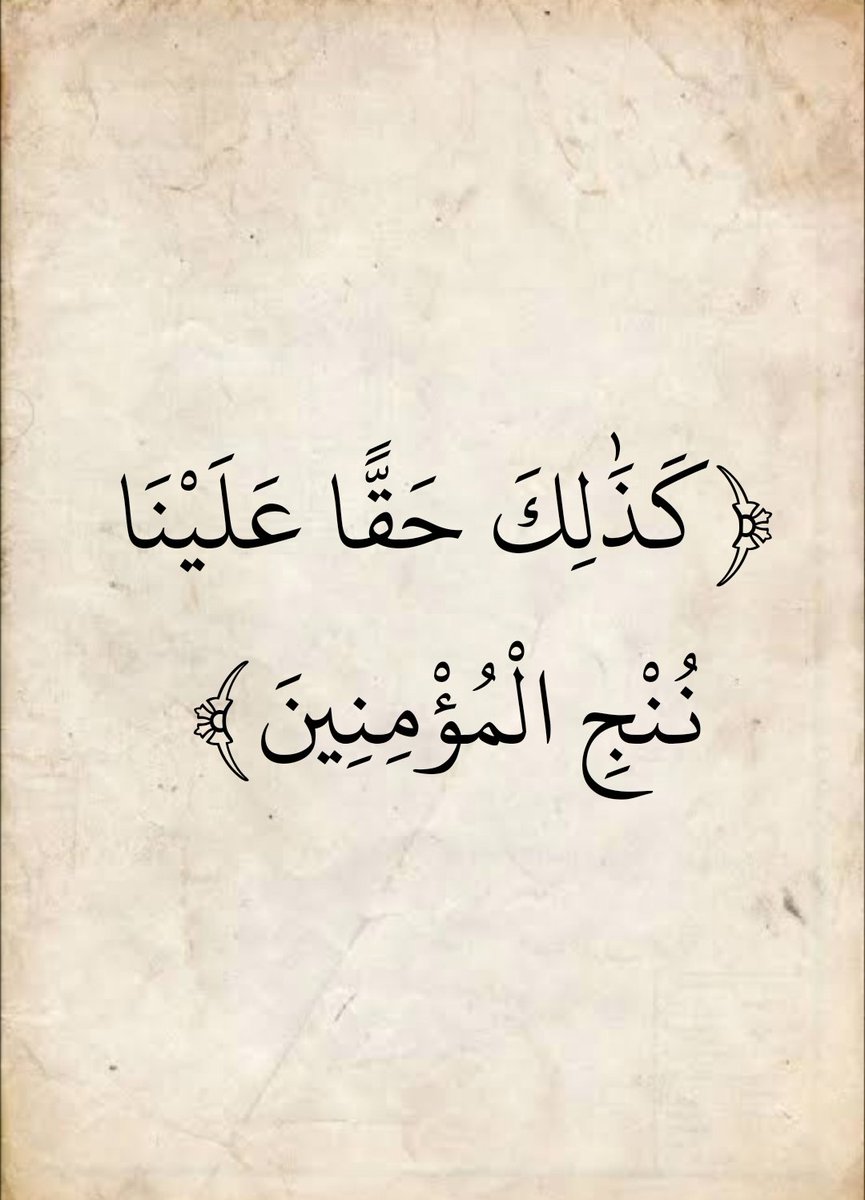 ﴿كَذَٰلِكَ حَقًّا عَلَيْنَا
نُنْجِ الْمُؤْمِنِينَ﴾